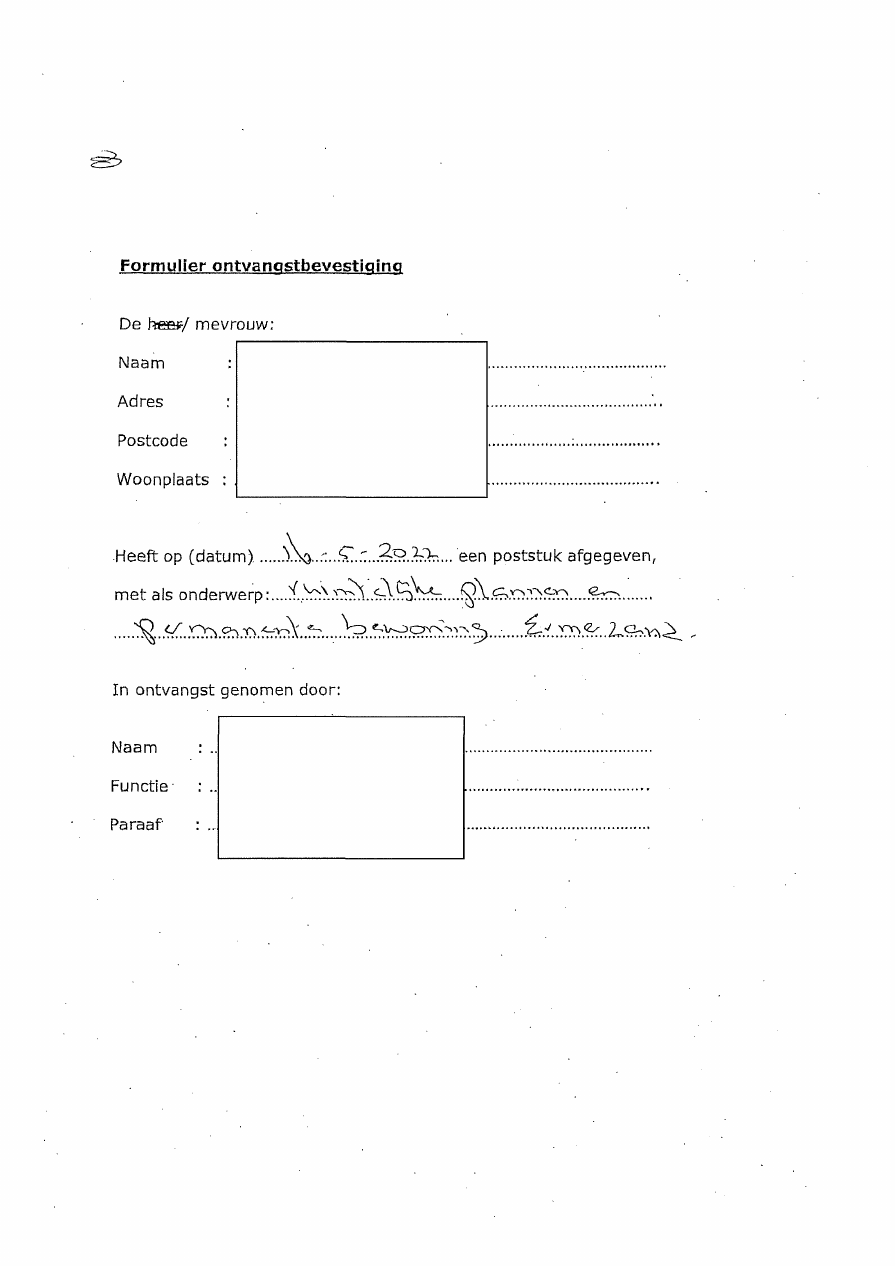 Formulier ontvangstbevestiging
De heer/ mevrouw:
Naam :
Adres :
Postcode :
Woonplaats :
Heeft op (datum) 10-5-2022 een poststuk afgegeven,
met als onderwerp: ruimtelijke plannen en
permanente bewoning Ermerzand.
In ontvangst genomen door:
Naam :
Functie :
Paraaf :